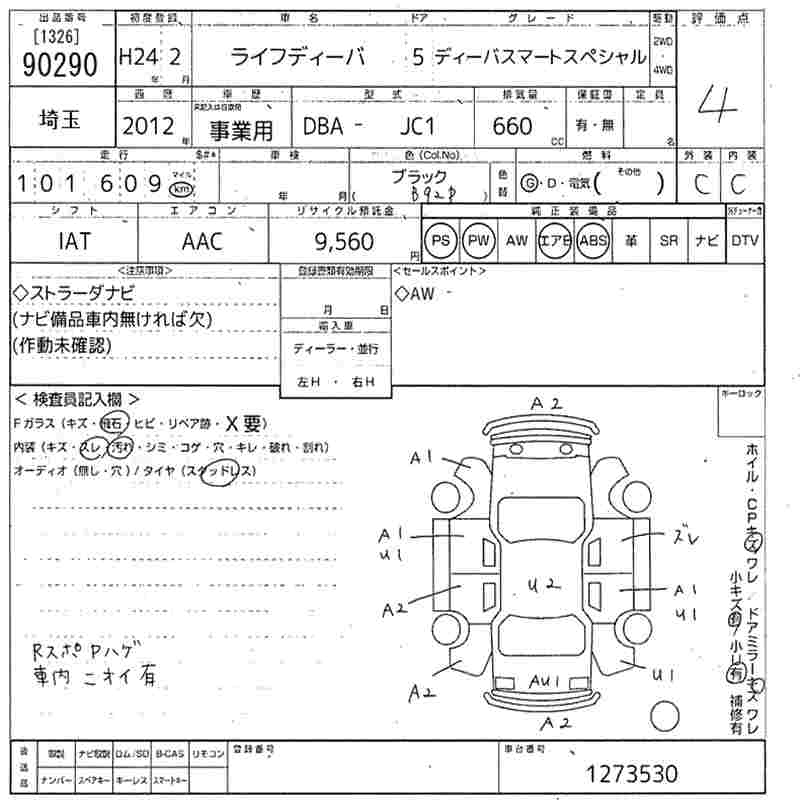 出品番号 初度登録 車名 ドア グレード 駆動 評価点
[1326]
90290 H24年 2月 ライフディーバ 5 ディーバスマートスペシャル 2WD・4WD 4
西歴 車歴 型式 排気量 保証書 定員
未記入は自家用
埼玉 2012年 事業用 DBA - JC1 660cc 有・無 名
走行 $#* 車検 色(Col.No) 燃料 外装 内装
101609 マイル km 年 月 ブラック (B92P) 色替 G・D・電気(その他) C C
シフト エアコン リサイクル預託金 純正装備品
IAT AAC 9,560円 PS PW AW エアB ABS 革 SR ナビ DTV
<注意事項> 登録書類有効期限 <セールスポイント>
◇ストラーダナビ ◇AW
(ナビ備品車内無ければ欠) 月 日
(作動未確認) 輸入車
ディーラー・並行
左H ・ 右H
< 検査員記入欄 > ホーロック
Fガラス (キズ・飛石・ヒビ・リペア跡・X要)
内装 (キズ・スレ・汚れ・シミ・コゲ・穴・キレ・破れ・割れ)
オーディオ (無し・穴) / タイヤ (スタッドレス)
A2
A1
A1 U1 ズレ
U2
A2 A1 U1
A2 AU1 U1
A2
ホイル・CPキズワレ ドアミラーキズワレ
小キズ有/小U有 補修有
Rスポ Pハゲ
車内 ニオイ 有
後送品 取説 ナビ取説 ロム/SD B-CAS リモコン 登録番号 車台番号
ナンバー スペアキー キーレス スマートキー 1273530